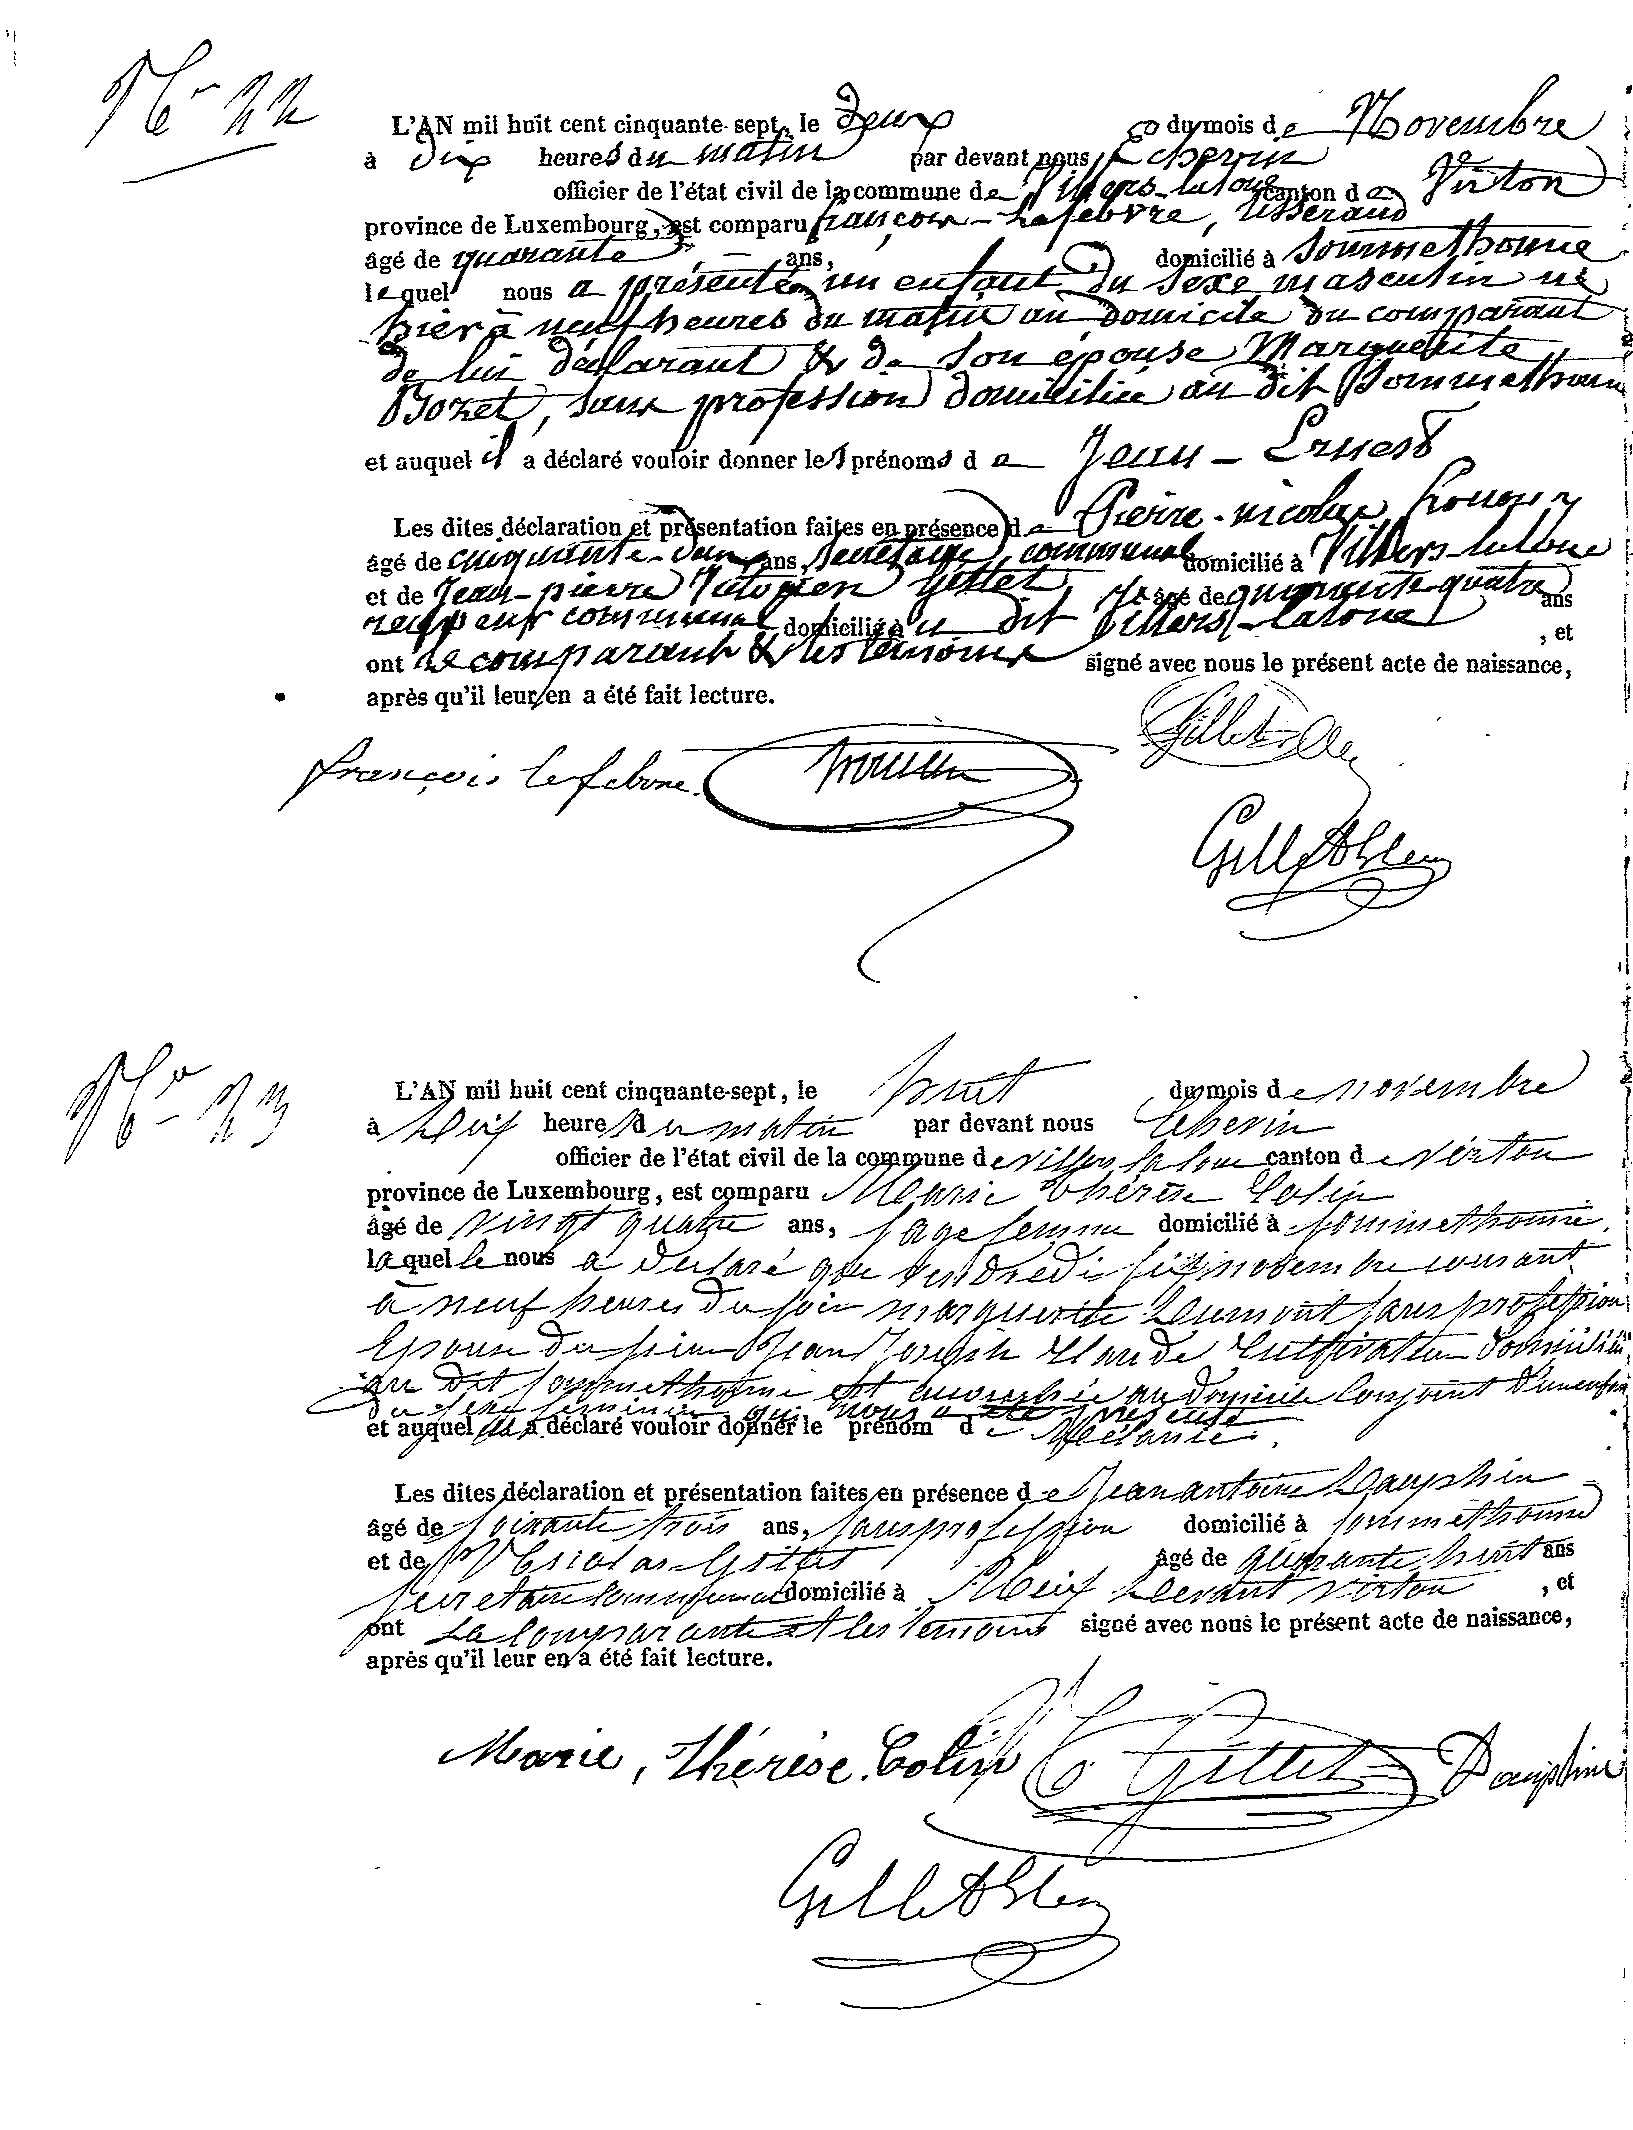 No 22
L'AN mil huit cent cinquante-sept, le Deux du mois de Novembre
à dix heures du matin par devant nous Echevin
officier de l'état civil de la commune de Villers-laloue canton de Virton
province de Luxembourg, est comparu françois - Lefebvre, tisserand
âgé de quarante ans, domicilié à Sommethonne
lequel nous a présenté un enfant du sexe masculin né
hier à neuf heures du matin au domicile du comparant
de lui déclarant & de son épouse Marguerite
Bozet, sans profession domiciliée au dit Sommethonne
et auquel il a déclaré vouloir donner les prénoms de Jean - Ernest
Les dites déclaration et présentation faites en présence de Pierre-nicolas
âgé de cinquante-deux ans, secrétaire communal domicilié à Villers-laloue
et de Jean-pierre Victorien Gillet âgé de quarante-quatre ans
receveur communal domicilié au dit Villers-laloue, et
ont le comparant & les temoins signé avec nous le présent acte de naissance,
après qu'il leur en a été fait lecture.
françois lefebvre
No 23
L'AN mil huit cent cinquante-sept, le huit du mois de novembre
à Dix heures du matin par devant nous Echevin
officier de l'état civil de la commune de villers laloue canton de virton
province de Luxembourg, est comparu Marie thérèse Colin
âgé de vingt quatre ans, sage femme domicilié à sommethonne
laquelle nous a declaré que vendredi six novembre courant
à neuf heures du soir marguerite Dumont sans profession
Epouse du sieur Jean Joseph Claude Cultivateur domicilié
au dit sommethonne est accouchée au domicile conjoint d'un enfan
du sexe feminin qui nous a été presenté
et auquel a déclaré vouloir donner le prénom de Mélanie.
Les dites déclaration et présentation faites en présence de Jean antoine Dauphin
âgé de soixante trois ans, sans profession domicilié à sommethonne
et de Nicolas Gillet âgé de quarante-huit ans
secretaire communal domicilié à Meix Devant virton, et
ont La comparante et les temoins signé avec nous le présent acte de naissance,
après qu'il leur en a été fait lecture.
Marie, thérèse. Colin Gillet Dauphin